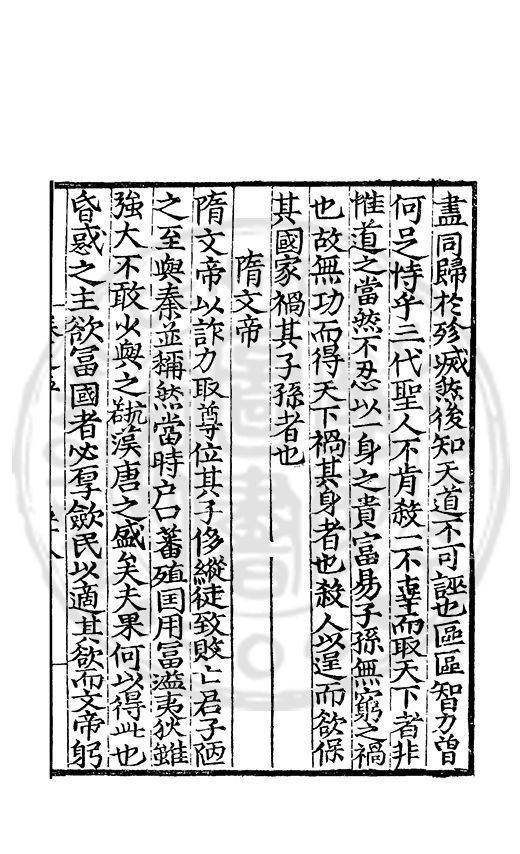 盡同歸於殄滅然後知天道不可誣也區區智力曽
何足恃乎三代聖人不肯殺一不辜而取天下者非
惟道之當然不忍以一身之貴富易子孫無窮之禍
也故無功而得天下禍其身者也殺人以逞而欲保
其國家禍其子孫者也
隋文帝
隋文帝以詐力取尊位其子侈縱徒致敗亡君子陋
之至與秦並稱然當時户口蕃殖国用冨溢夷狄雖
強大不敢少與之抗漢唐之盛矣夫果何以得此也
昏惑之主欲冨國者必厚歛民以適其欲而文帝躬